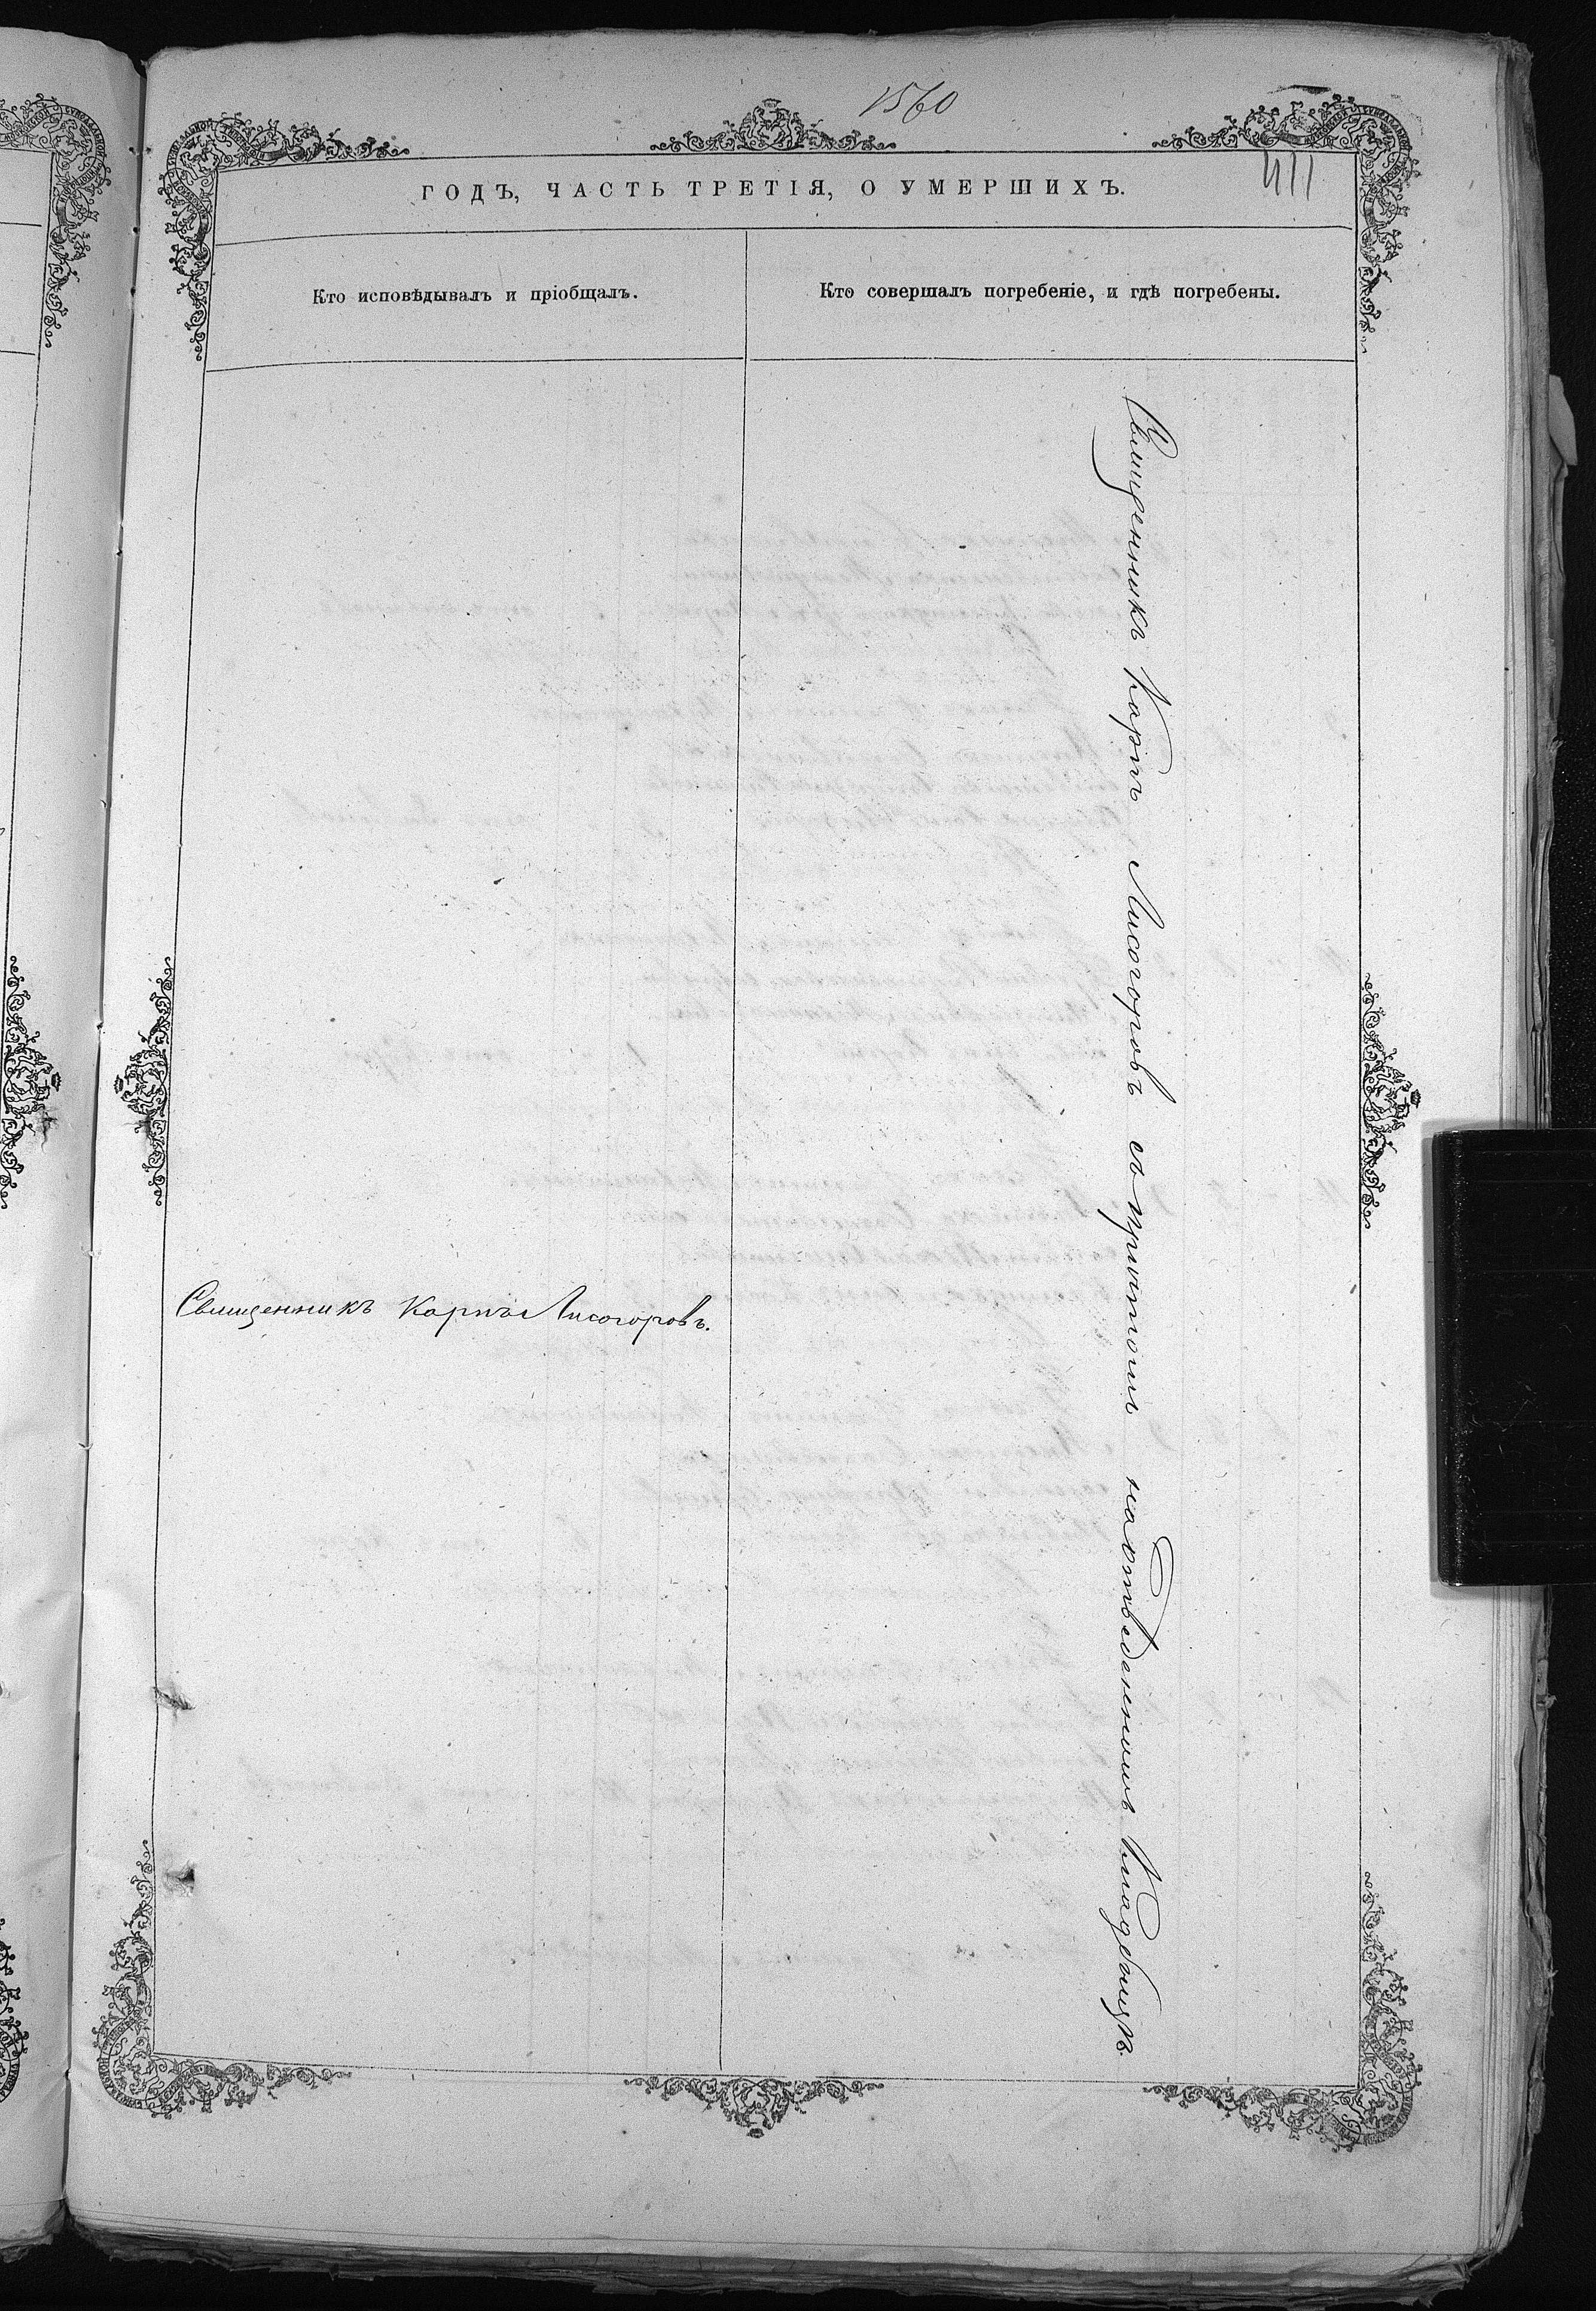 1560
411
ГОДЪ, ЧАСТЬ ТРЕТІЯ, О УМЕРШИХЪ.
Кто исповѣдывалъ и пріобщалъ.
Кто совершалъ погребеніе, и гдѣ погребены.
Священникъ Карпъ Лисогоровъ.
Священникъ Карпъ Лисогоровъ съ причтомъ на отведенномъ кладбищѣ.